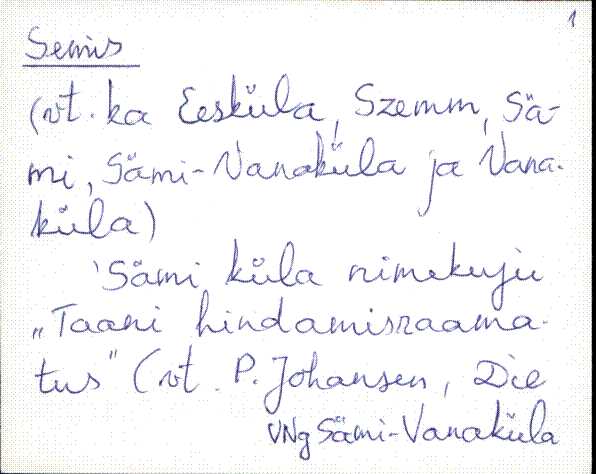 1
Semis
(vt. ka Eesküla, Szemm, Sä-
mi, Sämi-Vanaküla ja Vana-
küla)
'Sämi küla nimekuju
„Taani hindamisraama-
tus" (vt. P. Johansen, Die
VNg Sämi-Vanaküla